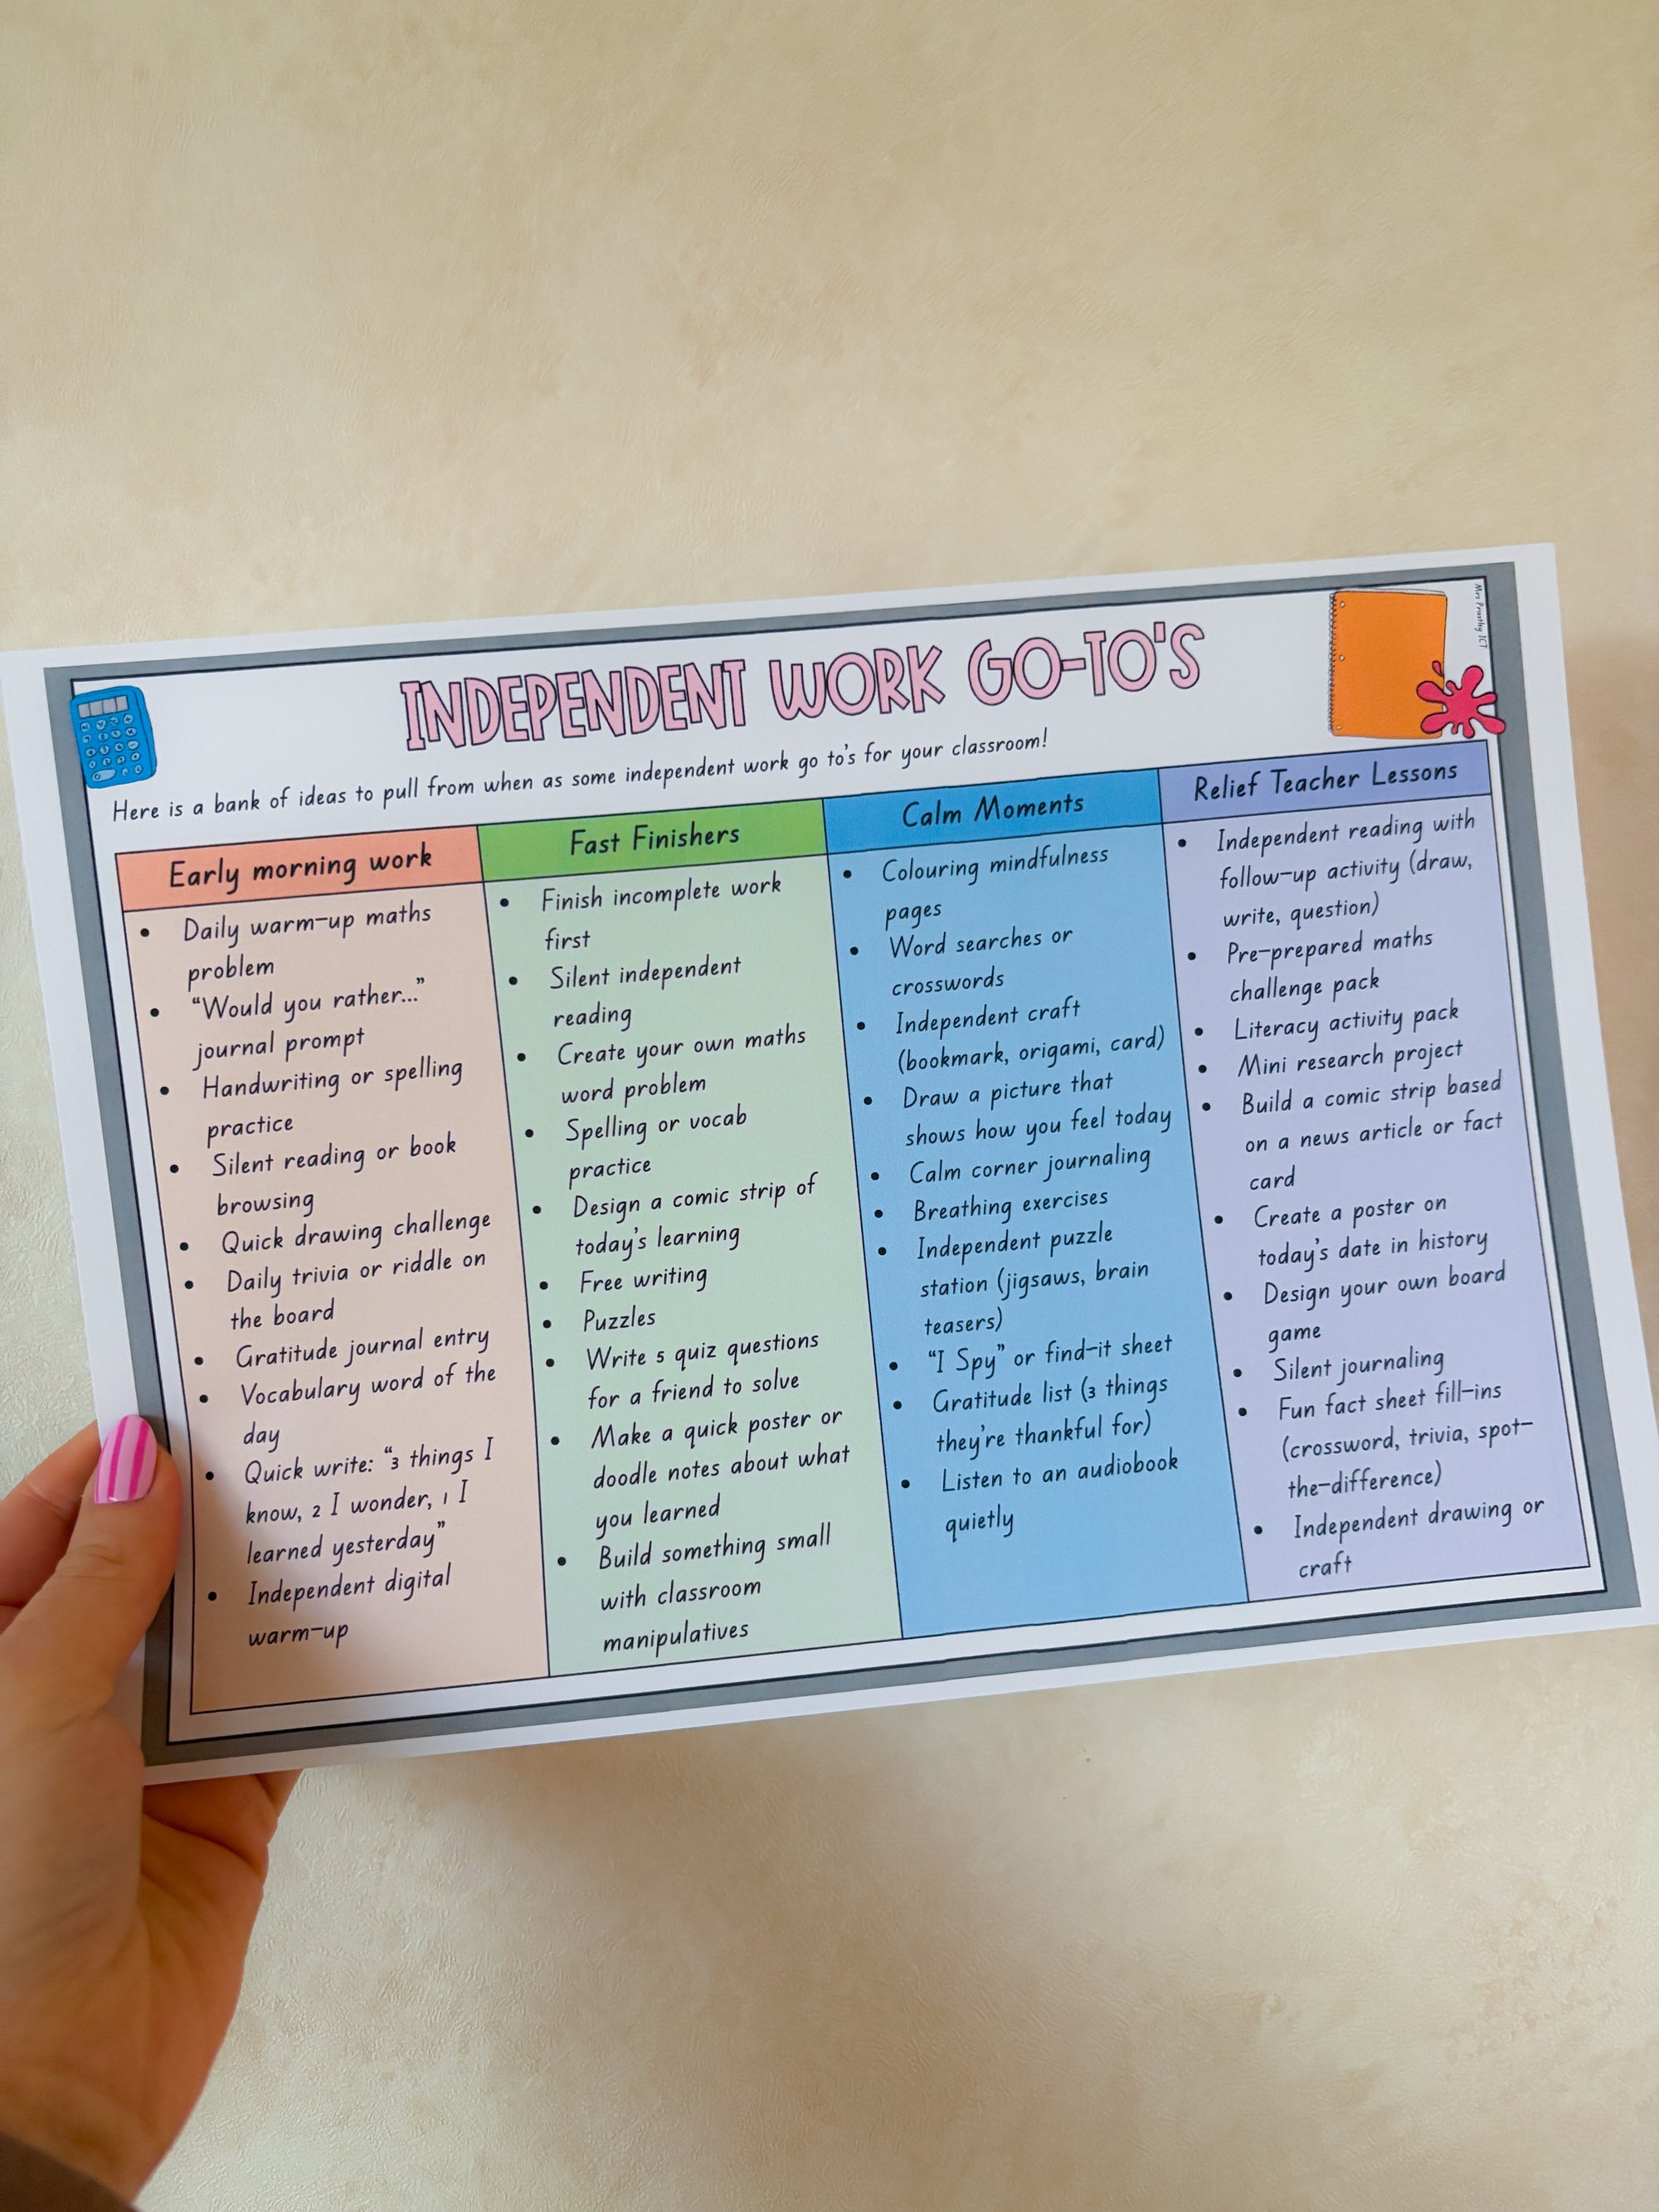 Mrs Priestley ICT
INDEPENDENT WORK GO-TO'S
Here is a bank of ideas to pull from when as some independent work go to's for your classroom!
Early morning work
• Daily warm-up maths
problem
• "Would you rather..."
journal prompt
• Handwriting or spelling
practice
• Silent reading or book
browsing
• Quick drawing challenge
• Daily trivia or riddle on
the board
• Gratitude journal entry
• Vocabulary word of the
day
• Quick write: "3 things I
know, 2 I wonder, 1 I
learned yesterday"
• Independent digital
warm-up
Fast Finishers
• Finish incomplete work
first
• Silent independent
reading
• Create your own maths
word problem
• Spelling or vocab
practice
• Design a comic strip of
today's learning
• Free writing
• Puzzles
• Write 5 quiz questions
for a friend to solve
• Make a quick poster or
doodle notes about what
you learned
• Build something small
with classroom
manipulatives
Calm Moments
• Colouring mindfulness
pages
• Word searches or
crosswords
• Independent craft
(bookmark, origami, card)
• Draw a picture that
shows how you feel today
• Calm corner journaling
• Breathing exercises
• Independent puzzle
station (jigsaws, brain
teasers)
• "I Spy" or find-it sheet
• Gratitude list (3 things
they're thankful for)
• Listen to an audiobook
quietly
Relief Teacher Lessons
• Independent reading with
follow-up activity (draw,
write, question)
• Pre-prepared maths
challenge pack
• Literacy activity pack
• Mini research project
• Build a comic strip based
on a news article or fact
card
• Create a poster on
today's date in history
• Design your own board
game
• Silent journaling
• Fun fact sheet fill-ins
(crossword, trivia, spot-
the-difference)
• Independent drawing or
craft